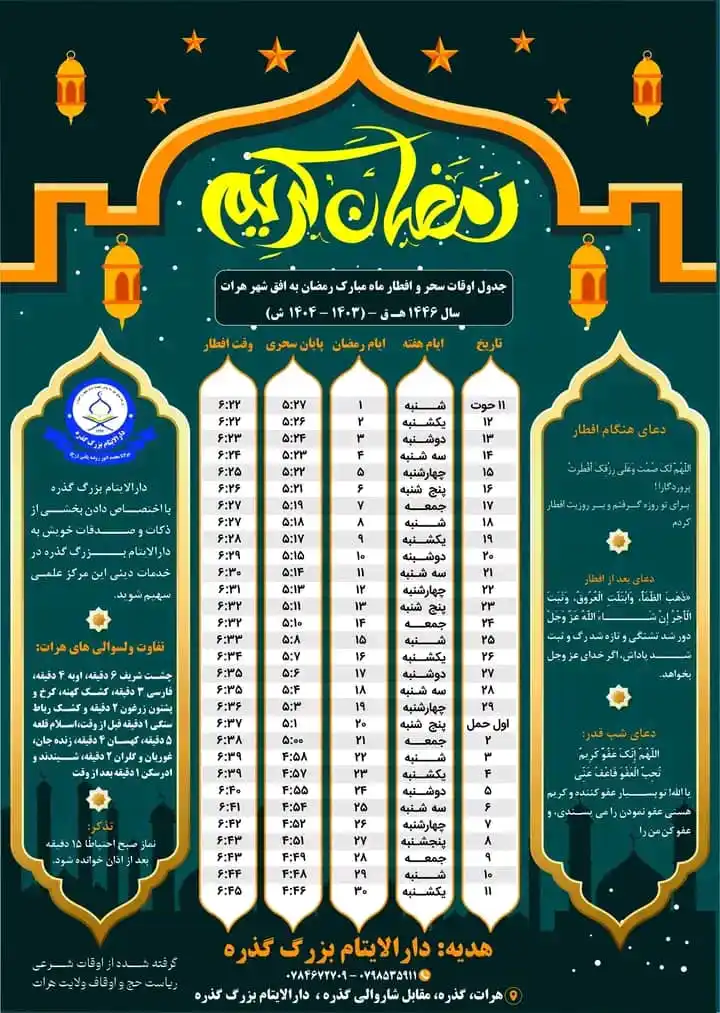 رمضان کریم
جدول اوقات سحر و افطار ماه مبارک رمضان به افق شهر هرات
سال ۱۴۴۶ هـ ق – (۱۴۰۳ – ۱۴۰۴ ش)
تاریخ ایام هفته ایام رمضان پایان سحری وقت افطار
۱۱ حوت شنبه ۱ ۵:۲۷ ۶:۲۲
۱۲ یکشنبه ۲ ۵:۲۶ ۶:۲۲
۱۳ دوشنبه ۳ ۵:۲۴ ۶:۲۳
۱۴ سه شنبه ۴ ۵:۲۳ ۶:۲۴
۱۵ چهارشنبه ۵ ۵:۲۲ ۶:۲۵
۱۶ پنج شنبه ۶ ۵:۲۱ ۶:۲۶
۱۷ جمعه ۷ ۵:۱۹ ۶:۲۷
۱۸ شنبه ۸ ۵:۱۸ ۶:۲۷
۱۹ یکشنبه ۹ ۵:۱۷ ۶:۲۸
۲۰ دوشنبه ۱۰ ۵:۱۵ ۶:۲۹
۲۱ سه شنبه ۱۱ ۵:۱۴ ۶:۳۰
۲۲ چهارشنبه ۱۲ ۵:۱۳ ۶:۳۱
۲۳ پنج شنبه ۱۳ ۵:۱۱ ۶:۳۲
۲۴ جمعه ۱۴ ۵:۱۰ ۶:۳۲
۲۵ شنبه ۱۵ ۵:۸ ۶:۳۳
۲۶ یکشنبه ۱۶ ۵:۷ ۶:۳۴
۲۷ دوشنبه ۱۷ ۵:۶ ۶:۳۵
۲۸ سه شنبه ۱۸ ۵:۴ ۶:۳۵
۲۹ چهارشنبه ۱۹ ۵:۳ ۶:۳۶
اول حمل پنج شنبه ۲۰ ۵:۱ ۶:۳۷
۲ جمعه ۲۱ ۵:۰۰ ۶:۳۸
۳ شنبه ۲۲ ۴:۵۸ ۶:۳۹
۴ یکشنبه ۲۳ ۴:۵۷ ۶:۳۹
۵ دوشنبه ۲۴ ۴:۵۵ ۶:۴۰
۶ سه شنبه ۲۵ ۴:۵۴ ۶:۴۱
۷ چهارشنبه ۲۶ ۴:۵۲ ۶:۴۲
۸ پنجشنبه ۲۷ ۴:۵۱ ۶:۴۳
۹ جمعه ۲۸ ۴:۴۹ ۶:۴۳
۱۰ شنبه ۲۹ ۴:۴۸ ۶:۴۴
۱۱ یکشنبه ۳۰ ۴:۴۶ ۶:۴۵
دعای هنگام افطار
اللّهُمَّ لَکَ صُمْتُ وَعَلَى رِزقِکَ أفْطَرتُ
پروردگارا!
برای تو روزه گرفتم و بر روزیت افطار
کردم
دعای بعد از افطار
«ذَهَبَ الظَّمَأُ، وَابْتَلَّتِ الْعُرُوقُ، وَثَبَتَ
الْأَجْرُ إِنْ شَاءَ اللهُ عَزَّ وَجَلَّ
دور شد تشنگی و تازه شد رگ و ثبت
شد پاداش، اگر خدای عز وجل
بخواهد.
دعای شب قدر:
اللَّهُمَّ إِنَّکَ عَفُوٌّ کَرِیمٌ
تُحِبُّ الْعَفْوَ فَاعْفُ عَنِّی
یا الله! تو بسیار عفو کننده و کریم
هستی عفو نمودن را می پسندی، و
عفو کن من را
دارالایتام بزرگ گذره
دارالایتام بزرگ گذره
با اختصاص دادن بخشی از
ذکات و صدقات خویش به
دارالایتام بزرگ گذره در
خدمات دینی این مرکز علمی
سهیم شوید.
تفاوت ولسوالی های هرات:
چشت شریف ۶ دقیقه، اوبه ۴ دقیقه،
فارسی ۳ دقیقه، کشک کهنه، کرخ و
پشتون زرغون ۲ دقیقه و کشک رباط
سنگی ۱ دقیقه قبل از وقت، اسلام قلعه
۵ دقیقه، کهسان ۴ دقیقه، زنده جان،
غوریان و گلران ۲ دقیقه، شیندند و
ادرسکن ۱ دقیقه بعد از وقت
تذکر:
نماز صبح احتیاطا ۱۵ دقیقه
بعد از اذان خوانده شود.
گرفته شده از اوقات شرعی
ریاست حج و اوقاف ولایت هرات
هدیه: دارالایتام بزرگ گذره
۰۷۹۸۵۳۵۹۱۱ – ۰۷۸۴۶۷۲۷۰۹
هرات، گذره، مقابل شاروالی گذره ، دارالایتام بزرگ گذره